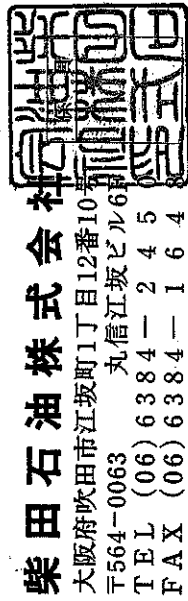 柴田石油株式会社
大阪府吹田市江坂町1丁目12番10号
〒564-0063 丸信江坂ビル6F
TEL (06)6384-2450
FAX (06)6384-1648